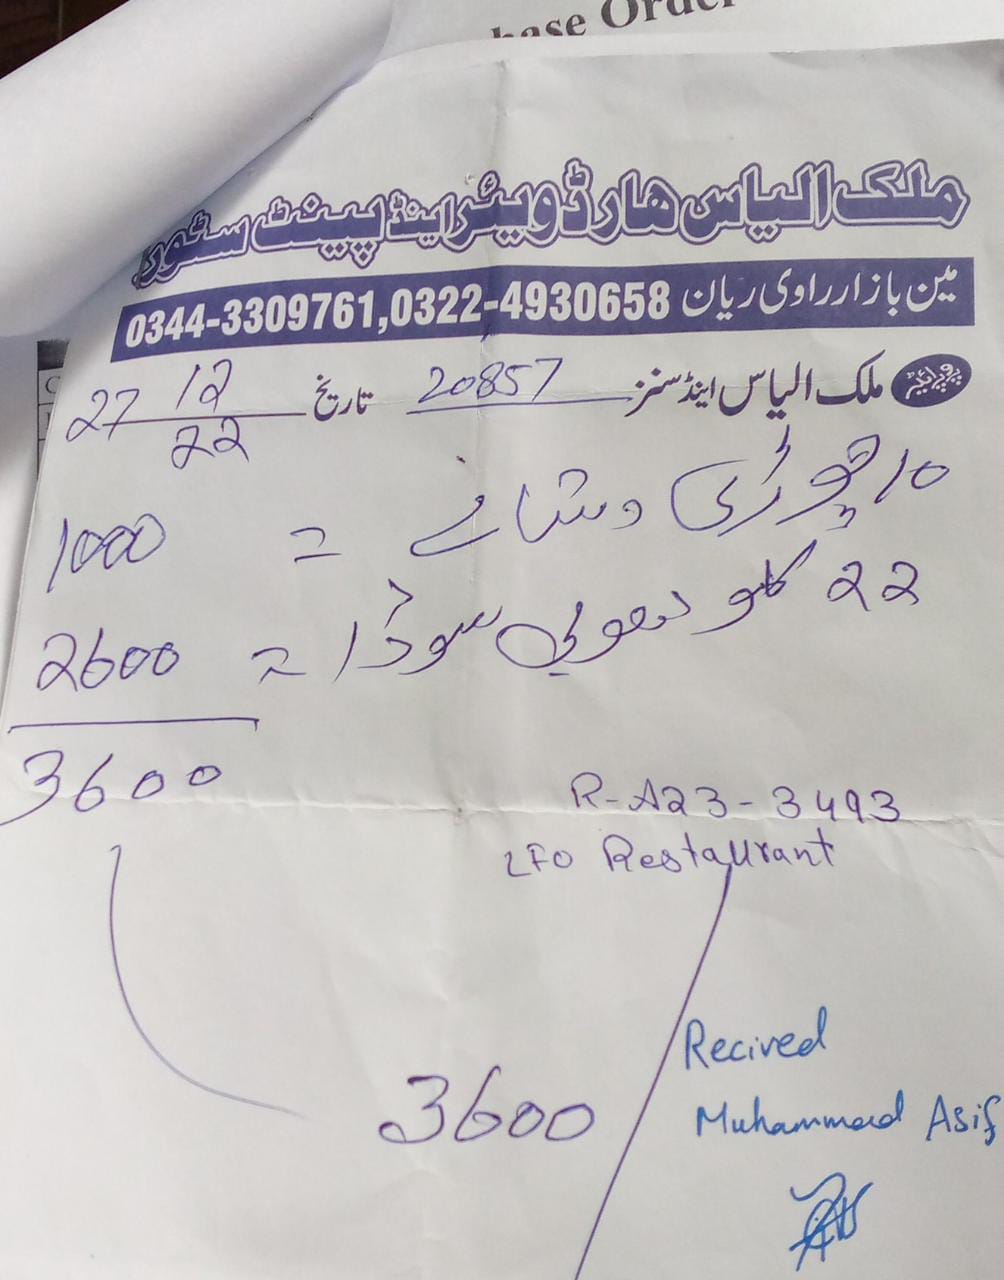 hase Order
ملک الیاس ہارڈویئر اینڈ پینٹ سٹور
مین بازار راوی ریان 0344-3309761,0322-4930658
پروپرائیٹر ملک الیاس اینڈ سنز 20857 تاریخ 27 12 22
10 جوڑی دستانے = 1000
22 کلو دھوبی سوڈا = 2600
3600
R-A23-3493
LFO Restaurant
Recived
3600
Muhammad Asif